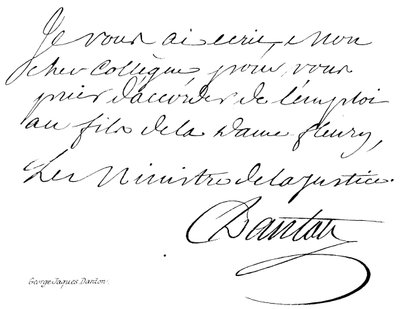 Je vous ai ecrit, Mon
cher Collègue, pour vous
prier d'accorder de l'emploi
au fils de la Dame fleury,
Le Ministre de la justice.
Danton
George Jaques Danton.